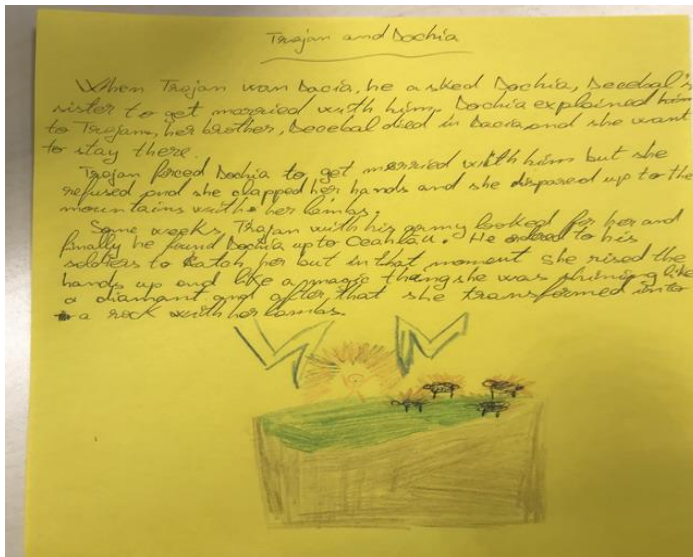 Trojan and Dochia
When Trojan wan Dacia, he asked Dochia, Decebal's
sister to get married with him. Dochia explained him
to Trojan, her brother, Decebal died in Dacia, and she want
to stay there.
Trojan forced Dochia to get married with him but she
refused and she clapped her hands and she dispared up to the
mountains with her lambs.
Some weeks, Trojan with his army looked for her and
finally he found Dochia up to Ceahlău. He ordered to his
soldiers to katch her but in that moment she rised the
hands up and like a magic thang she was shining like
a diamant and after that she transformed into
a rock with her lambs.